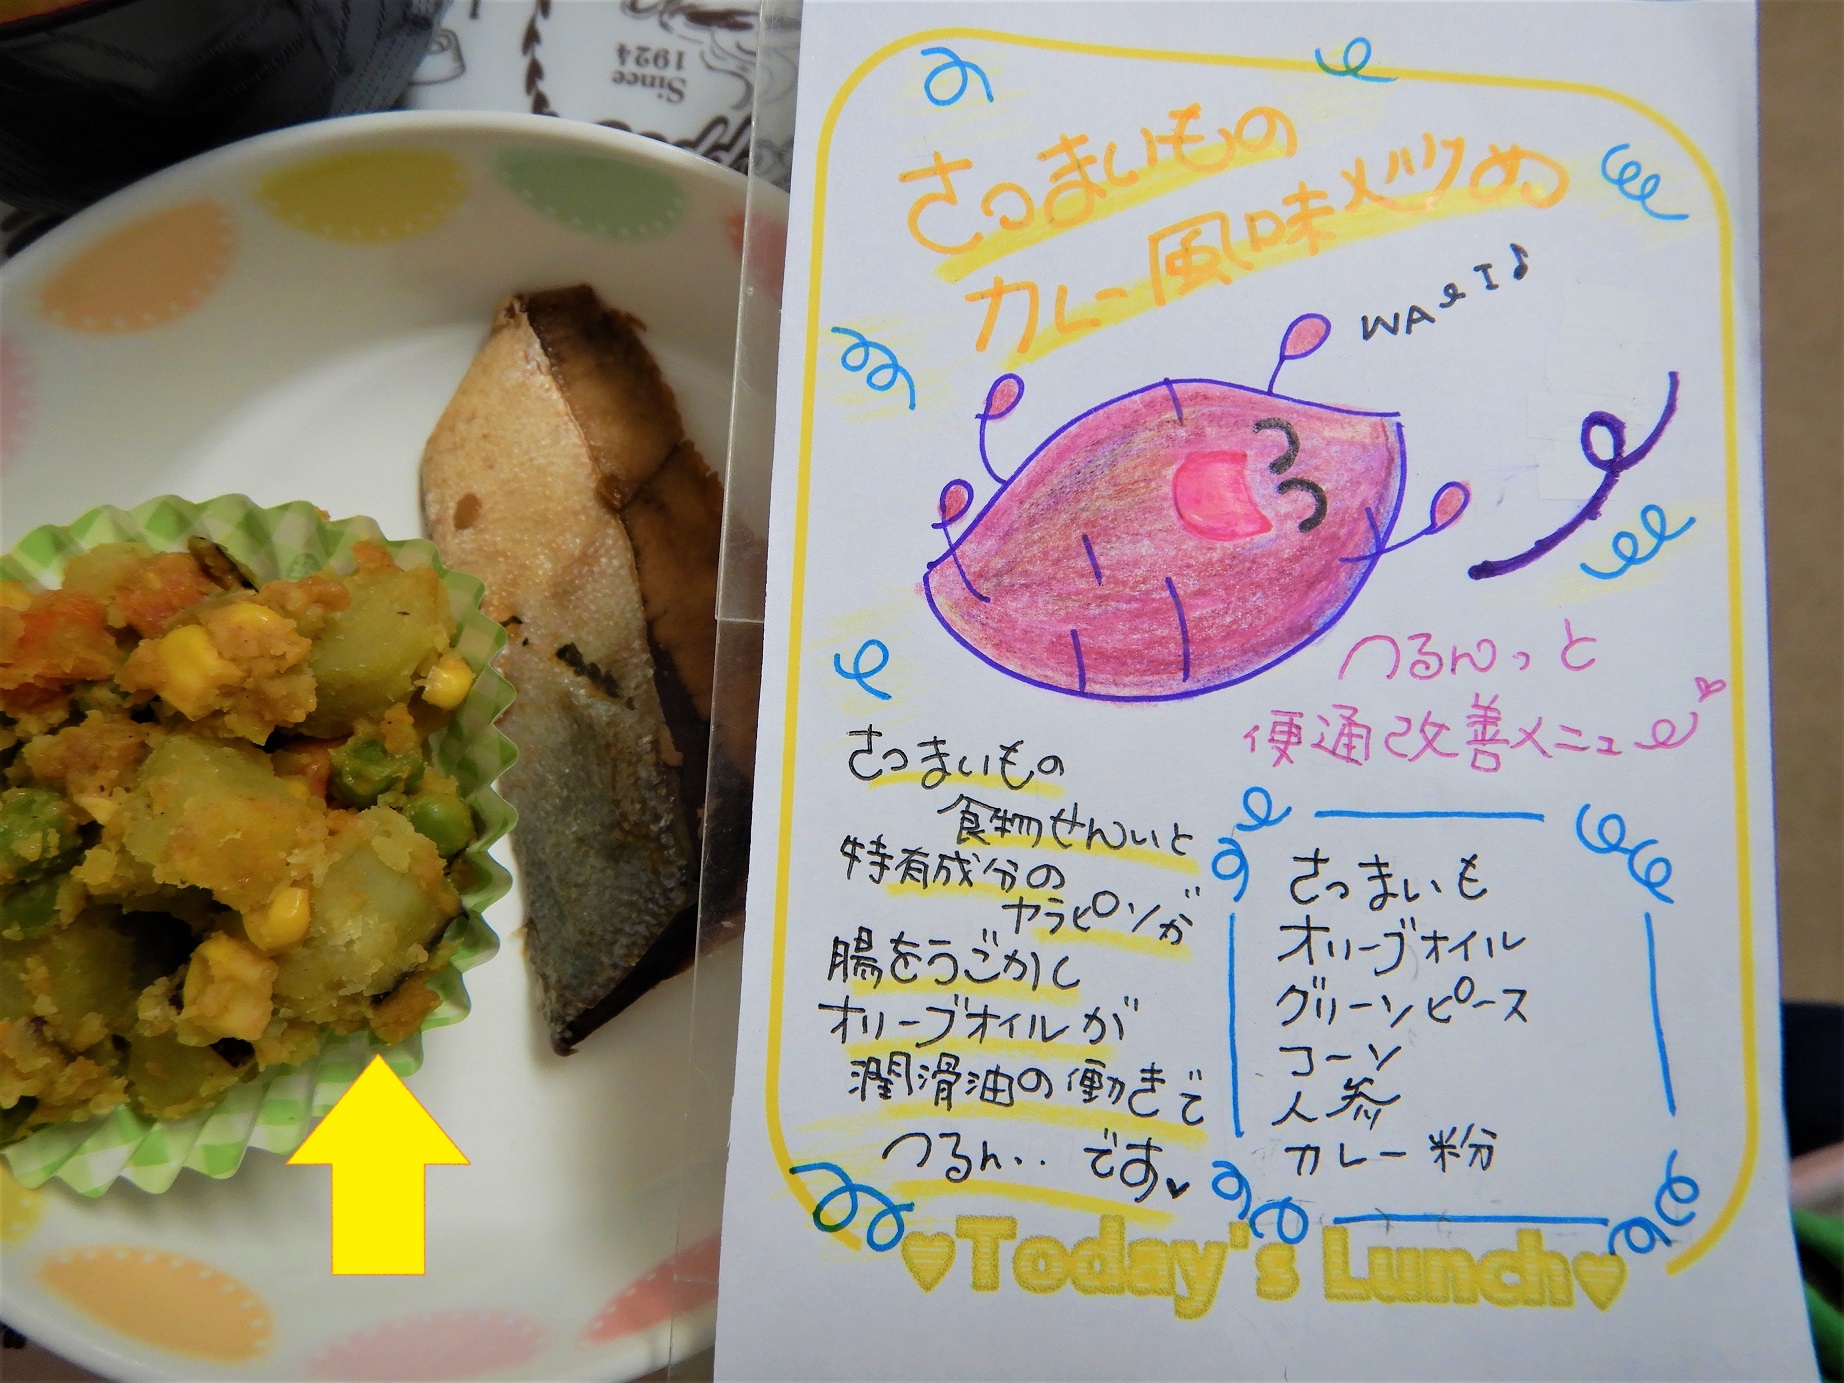 Since
1924
さつまいもの
カレー風味メツクめ
WAーI♪
つるんっと
便通改善メニュー
さつまいもの
食物せんいと
特有成分の
ヤラピンが
腸をうごかし
オリーブオイルが
潤滑油の働きで
つるん‥です♥
さつまいも
オリーブオイル
グリーンピース
コーン
人参
カレー粉
♥Today's Lunch♥